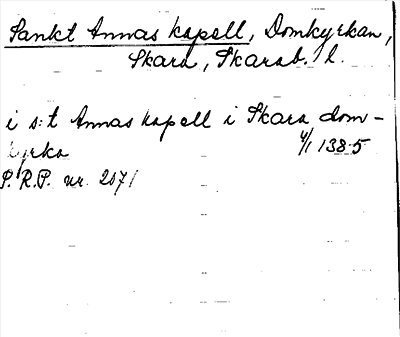 Sankt Annas kapell, Domkyrkan,
Skara, Skarab. l.
i s:t Annas kapell i Skara dom-
kyrka 4/1 1385
P.R.P. nr. 2071